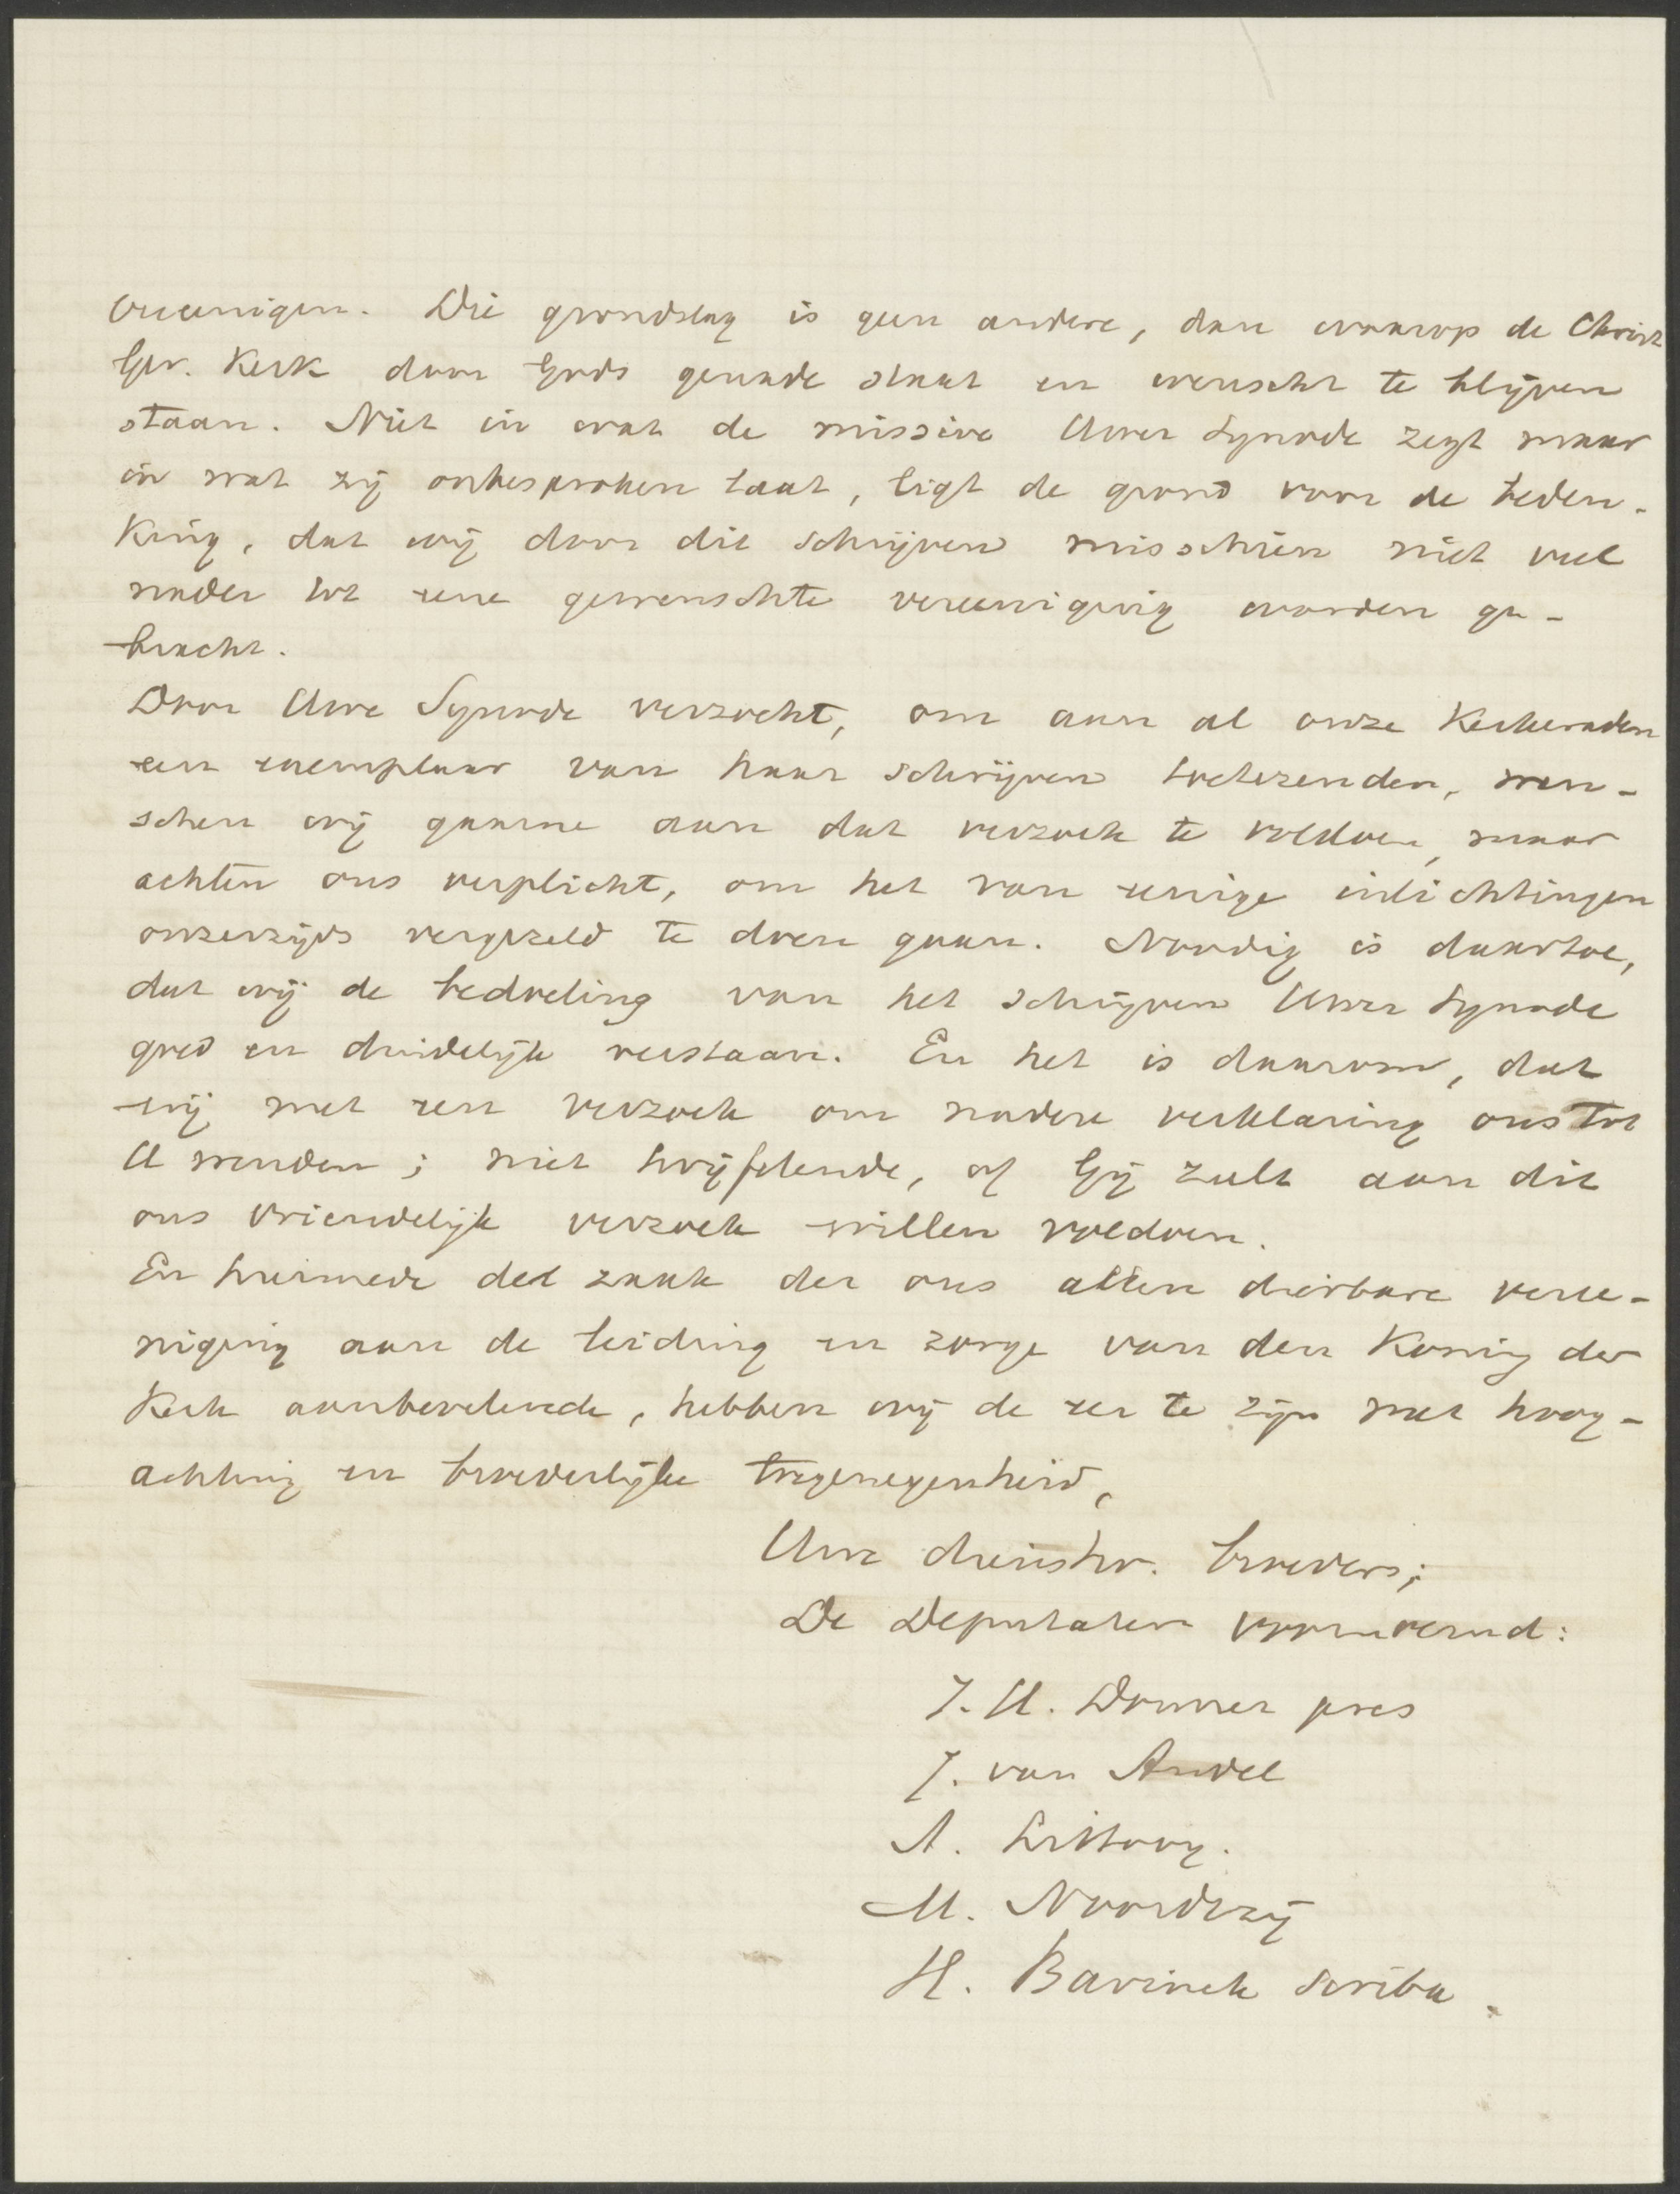 vereenigen. Die grondslag is geen andere, dan waarop de Christ
Ger. Kerk door Gods genade staat en wenscht te blijven
staan. Niet in wat de missive Uwer Synode zegt maar
in wat zij onbesproken laat, ligt de grond voor de beden-
king, dat wij door dit schrijven misschien niet veel
nader tot eene gewenschte vereeniging worden ge-
bracht.
Door Uwe Synode verzocht, om aan al onze Kerkeraden
een exemplaar van haar schrijven toetezenden, wen-
schen wij gaarne aan dat verzoek te voldoen, maar
achten ons verplicht, om het van eenige inlichtingen
onzerzijds vergezeld te doen gaan. Noodig is daartoe,
dat wij de bedoeling van het schrijven Uwer Synode
goed en duidelijk verstaan. En het is daarom, dat
wij met een verzoek om nadere verklaring ons tot
U wenden; niet twijfelende, of Gij zult aan dit
ons vriendelijk verzoek willen voldoen.
En hiermede de zaak der ons allen dierbare veree-
niging aan de leiding en zorge van den Koning der
Kerk aanbevelende, hebben wij de eer te zijn met hoog-
achting en broederlijke toegenegenheid,
Uwe dienstw. broeders;
De Deputaten voornoemd:
J. H. Donner pres
J. van Andel
A. Littooy.
M. Noordtzij
H. Bavinck scriba.